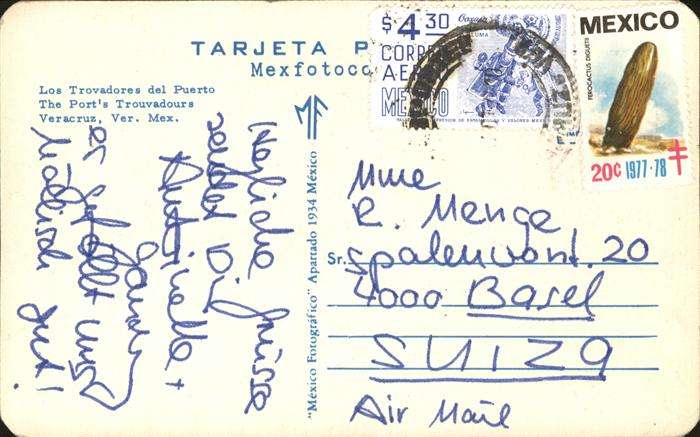 TARJETA P
Mexfotoco
Los Trovadores del Puerto
The Port's Trouvadours
Veracruz, Ver. Mex.
MF
"México Fotográfico" Apartado 1934 México
Herzliche Grüsse
sendet Dir
+
es gefällt uns
gut!
$4.30 Oaxaca
CORREO
AEREO
MEXICO
MEXICO
FEROCACTUS DIGUETII
20c 1977-78
Mme
R. Menge
Sr. Spalenvorst. 20
4000 Basel
SUIZA
Air Mail